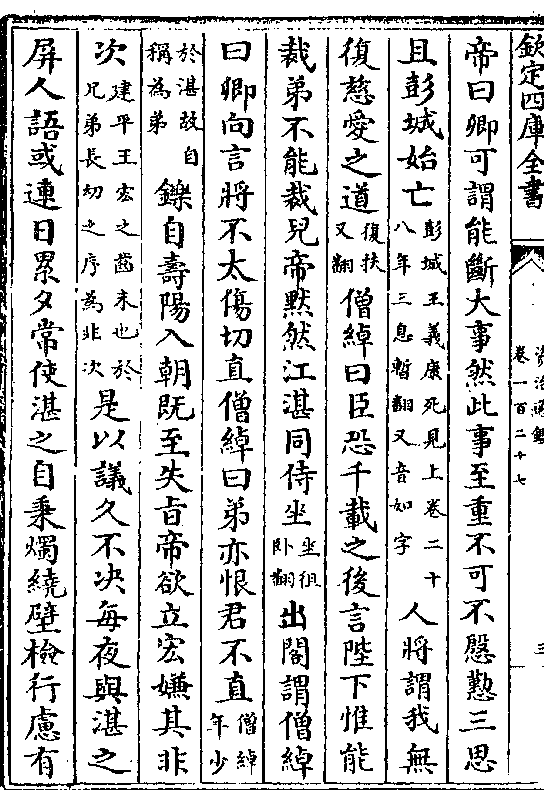 欽定四庫全書 資治通鑑 卷一百二十七 三
帝曰卿可謂能斷大事然此事至重不可不慇懃三思
且彭城始亡彭城王義康死見上卷二十八年三息暫翻又音如字人將謂我無
復慈愛之道復扶又翻僧綽曰臣恐千載之後言陛下惟能
裁弟不能裁兒帝黙然江湛同侍坐坐徂卧翻出閤謂僧綽
曰卿向言將不太傷切直僧綽曰弟亦恨君不直僧綽年少
於湛故自稱為弟鑠自壽陽入朝既至失㫖帝欲立宏嫌其非
次建平王宏之齒未也於兄弟長幼之序為非次是以議久不決每夜與湛之
屏人語或連日累夕常使湛之自秉燭繞壁檢行慮有